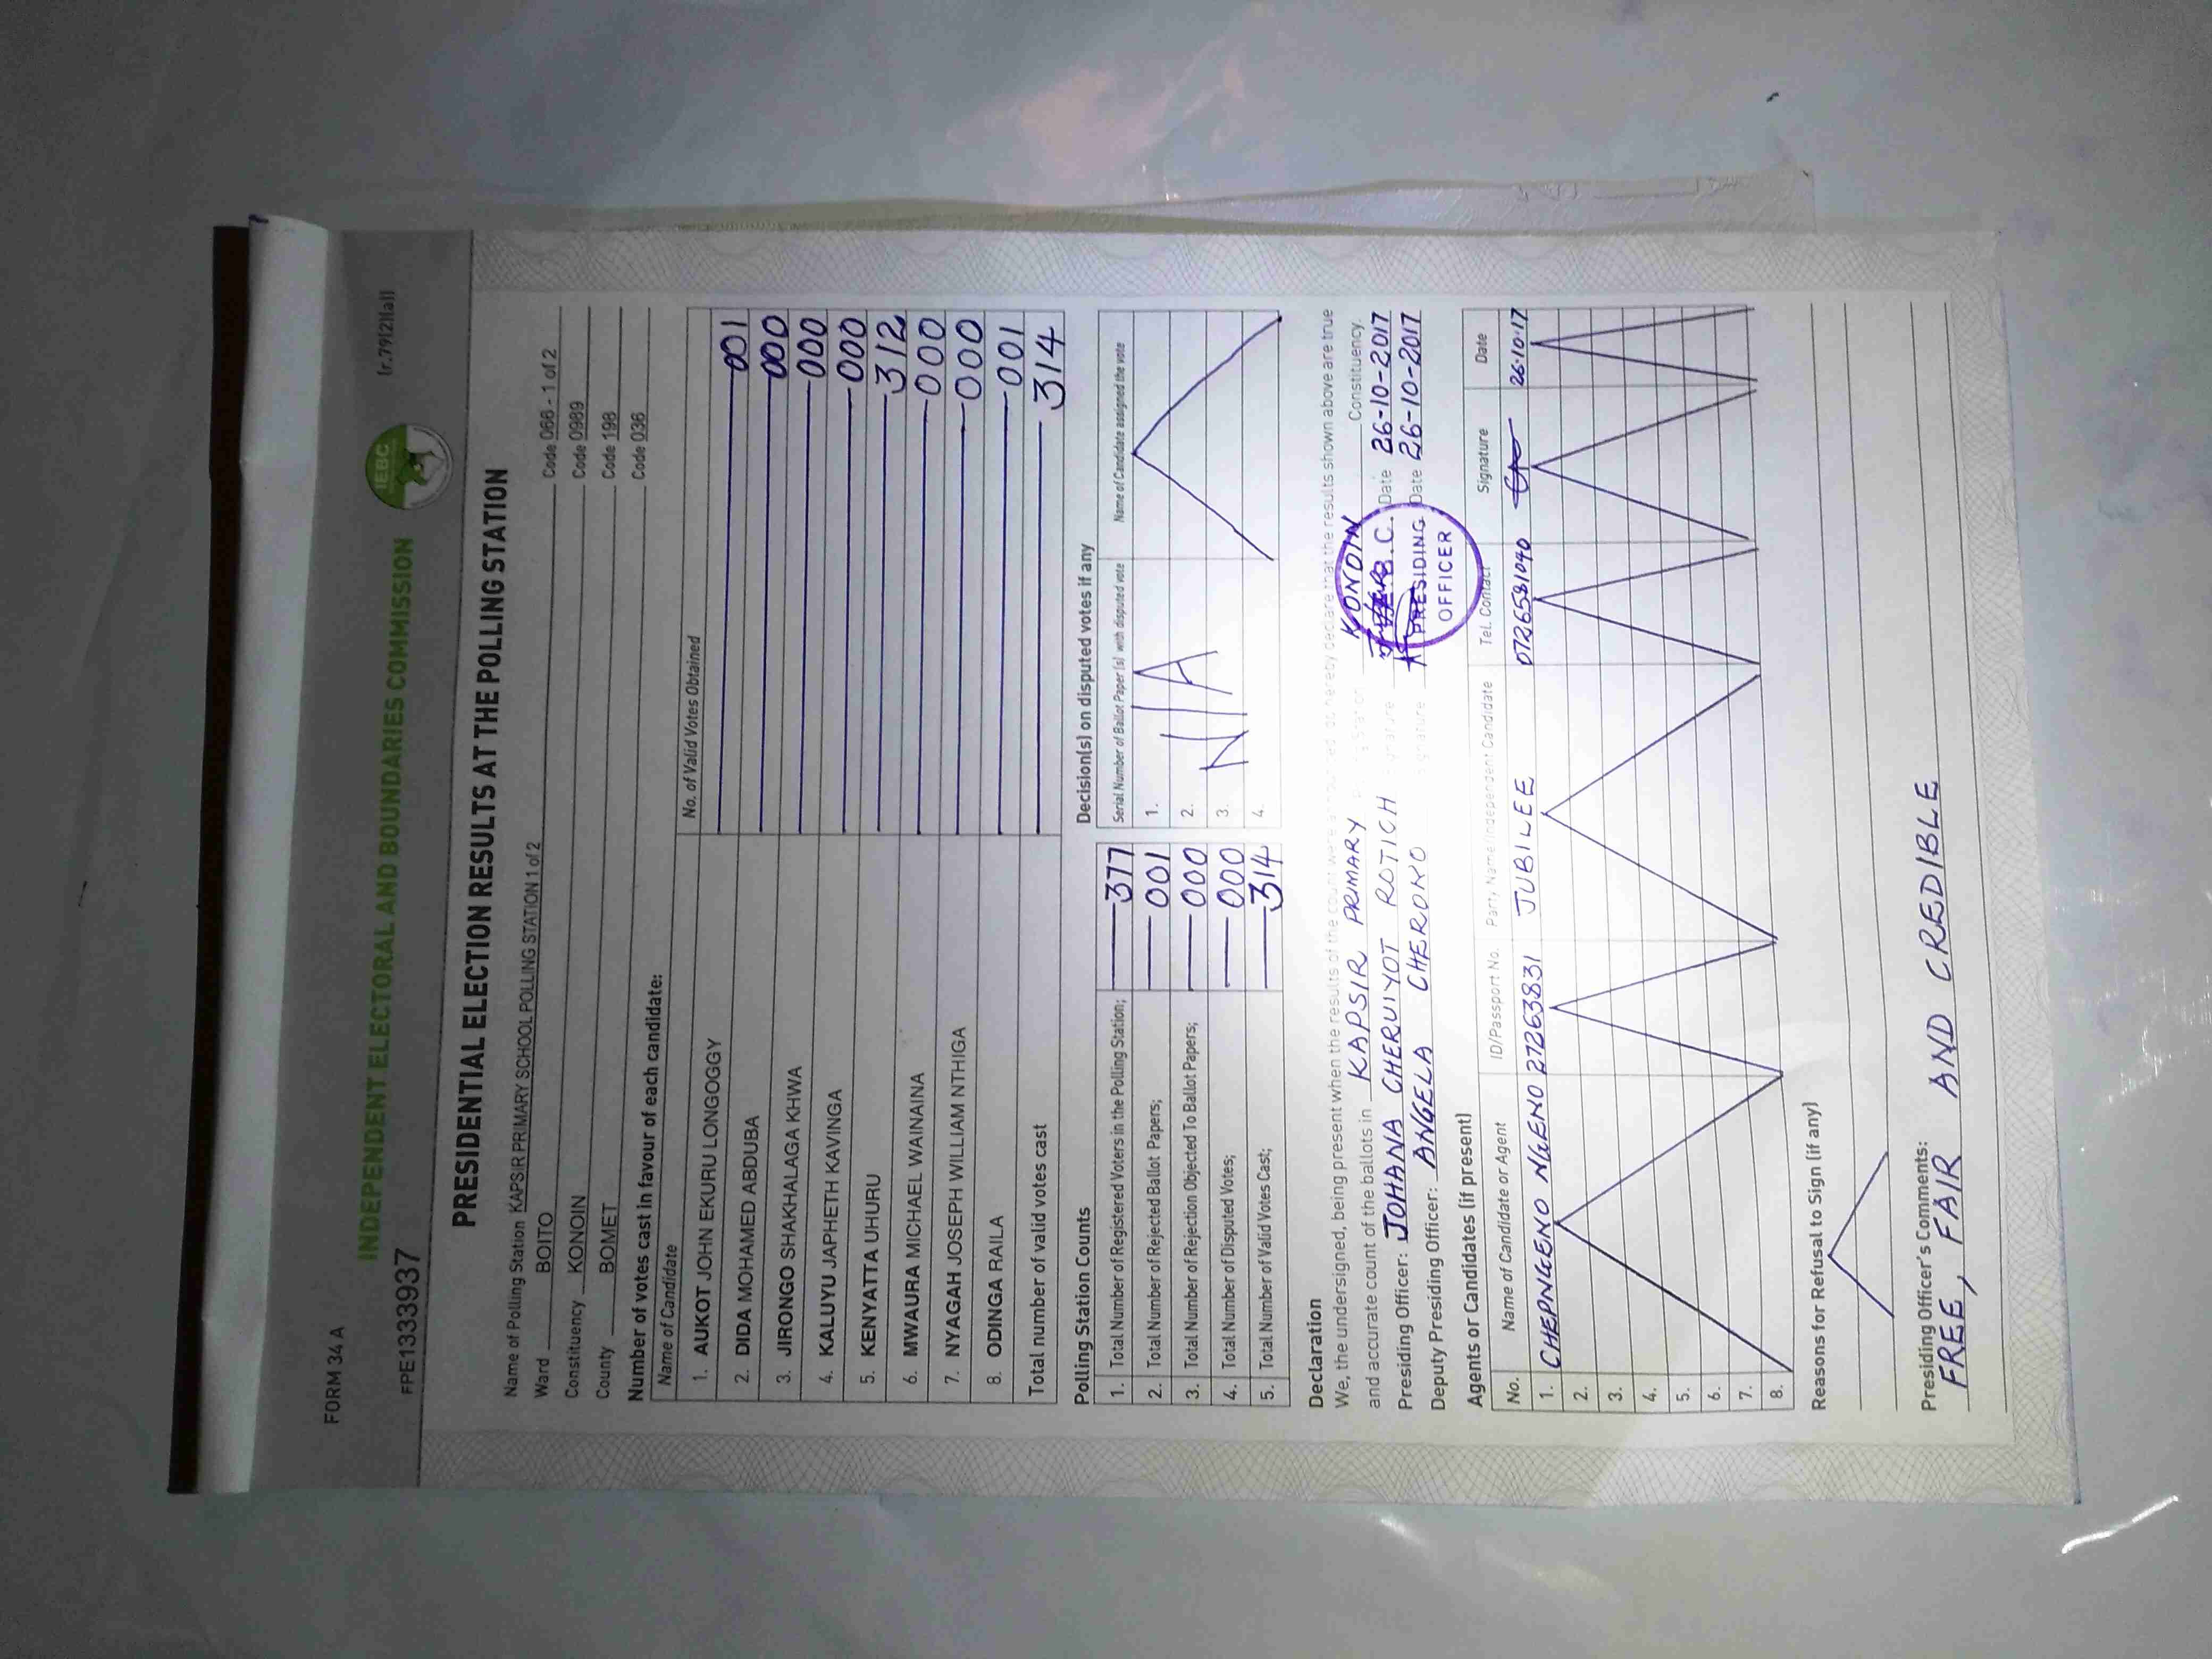 FORM 34 A
INDEPENDENT ELECTORAL AND BOUNDARIES COMMISSION
IEBC
(r.79(2)(a))
FPE1333937
PRESIDENTIAL ELECTION RESULTS AT THE POLLING STATION
Name of Polling Station KAPSIR PRIMARY SCHOOL POLLING STATION 1 of 2 Code 066 - 1 of 2
Ward BOITO Code 0989
Constituency KONOIN Code 198
County BOMET Code 036
Number of votes cast in favour of each candidate:
Name of Candidate No. of Valid Votes Obtained
1. AUKOT JOHN EKURU LONGOGGY 001
2. DIDA MOHAMED ABDUBA 000
3. JIRONGO SHAKHALAGA KHWA 000
4. KALUYU JAPHETH KAVINGA 000
5. KENYATTA UHURU 312
6. MWAURA MICHAEL WAINAINA 000
7. NYAGAH JOSEPH WILLIAM NTHIGA 000
8. ODINGA RAILA 001
Total number of valid votes cast 314
Polling Station Counts
1. Total Number of Registered Voters in the Polling Station; 377
2. Total Number of Rejected Ballot Papers; 001
3. Total Number of Rejection Objected To Ballot Papers; 000
4. Total Number of Disputed Votes; 000
5. Total Number of Valid Votes Cast; 314
Decision(s) on disputed votes if any
Serial Number of Ballot Paper (s) with disputed vote Name of Candidate assigned the vote
1.
2.
3.
4.
N/A
Declaration
We, the undersigned, being present when the results of the count were announced, do hereby declare that the results shown above are true
and accurate count of the ballots in KAPSIR PRIMARY Station KONOIN Constituency.
Presiding Officer: JOHANA CHERUIYOT ROTICH Signature Date 26-10-2017
Deputy Presiding Officer: ANGELA CHERONO Signature Date 26-10-2017
PRESIDING
OFFICER
Agents or Candidates (if present)
No. Name of Candidate or Agent ID/Passport No. Party Name/Independent Candidate Tel. Contact Signature Date
1. CHEPNGENO NGENO 27263831 JUBILEE 0726581040 26-10-17
2.
3.
4.
5.
6.
7.
8.
Reasons for Refusal to Sign (if any)
Presiding Officer's Comments:
FREE, FAIR AND CREDIBLE